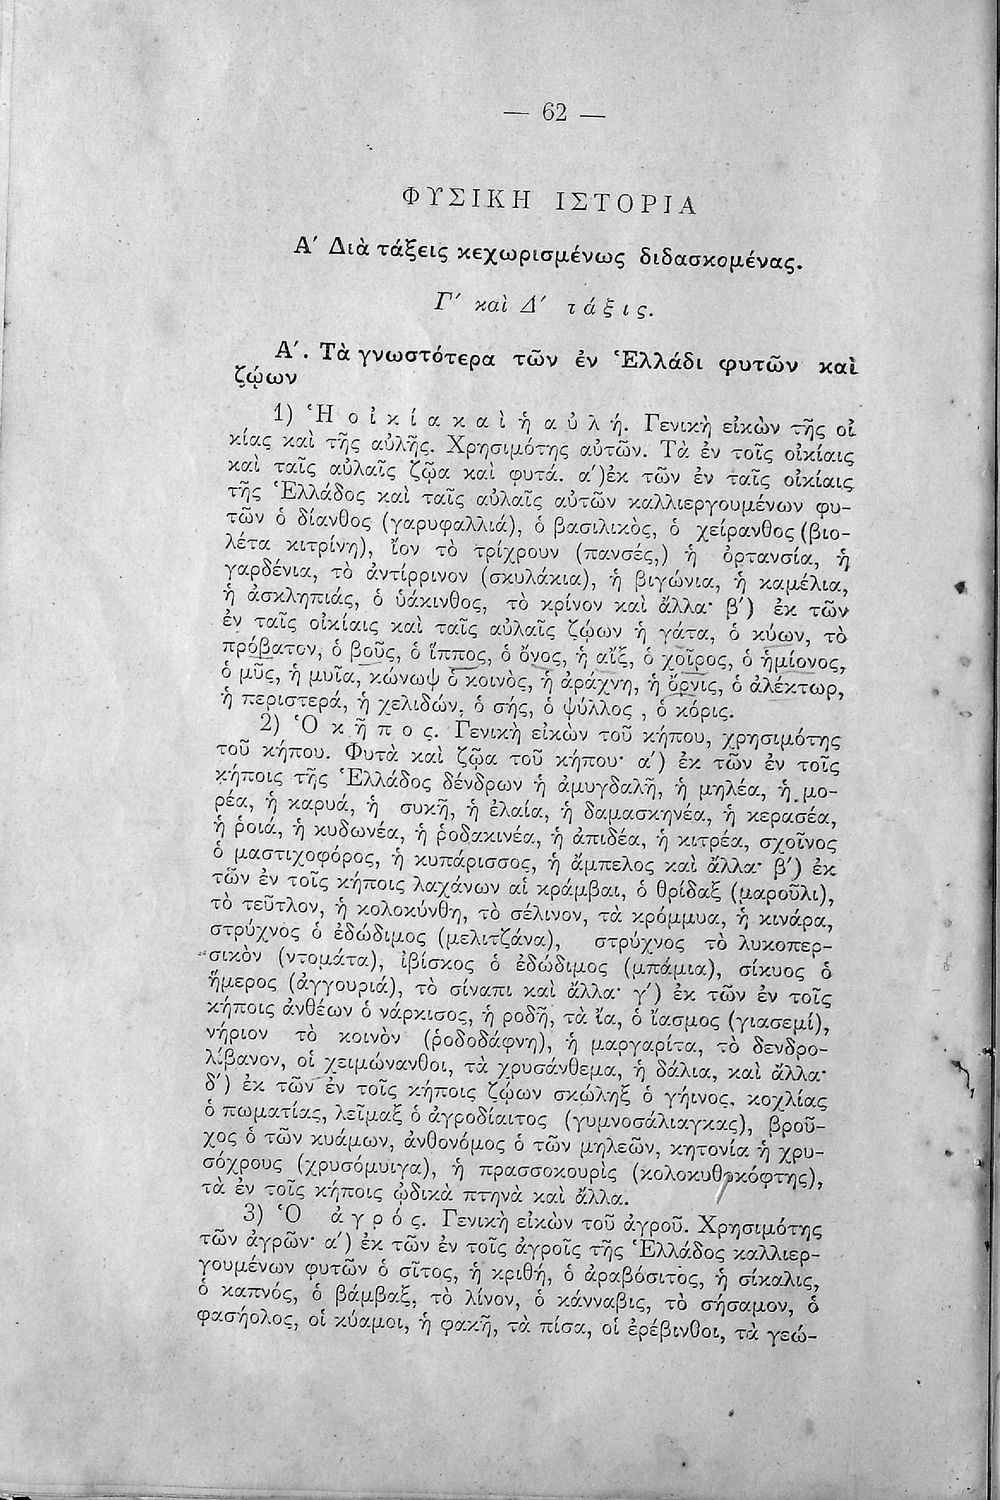 — 62 —
ΦΥΣΙΚΗ ΙΣΤΟΡΙΑ
Α΄ Διὰ τάξεις κεχωρισμένως διδασκομένας.
Γ΄ καὶ Δ΄ τάξις.
Α΄. Τὰ γνωστότερα τῶν ἐν Ἑλλάδι φυτῶν καὶ
ζῴων
1) Ἡ οἰκία καὶ ἡ αὐλή. Γενικὴ εἰκὼν τῆς οἰ
κίας καὶ τῆς αὐλῆς. Χρησιμότης αὐτῶν. Τὰ ἐν τοῖς οἰκίαις
καὶ ταῖς αὐλαῖς ζῷα καὶ φυτά. α΄)ἐκ τῶν ἐν ταῖς οἰκίαις
τῆς Ἑλλάδος καὶ ταῖς αὐλαῖς αὐτῶν καλλιεργουμένων φυ-
τῶν ὁ δίανθος (γαρυφαλλιά), ὁ βασιλικὸς, ὁ χείρανθος (βιο-
λέτα κιτρίνη), ἴον τὸ τρίχρουν (πανσές,) ἡ ὀρτανσία, ἡ
γαρδένια, τὸ ἀντίρρινον (σκυλάκια), ἡ βιγώνια, ἡ καμέλια,
ἡ ἀσκληπιάς, ὁ ὑάκινθος, τὸ κρίνον καὶ ἄλλα· β΄) ἐκ τῶν
ἐν ταῖς οἰκίαις καὶ ταῖς αὐλαῖς ζῴων ἡ γάτα, ὁ κύων, τὸ
πρόβατον, ὁ βοῦς, ὁ ἵππος, ὁ ὄνος, ἡ αἴξ, ὁ χοῖρος, ὁ ἡμίονος,
ὁ μῦς, ἡ μυῖα, κώνωψ ὁ κοινὸς, ἡ ἀράχνη, ἡ ὄρνις, ὁ ἀλέκτωρ,
ἡ περιστερά, ἡ χελιδών, ὁ σής, ὁ ψύλλος , ὁ κόρις.
2) Ὁ κῆπος. Γενικὴ εἰκὼν τοῦ κήπου, χρησιμότης
τοῦ κήπου. Φυτὰ καὶ ζῷα τοῦ κήπου· α΄) ἐκ τῶν ἐν τοῖς
κήποις τῆς Ἑλλάδος δένδρων ἡ ἀμυγδαλῆ, ἡ μηλέα, ἡ μο-
ρέα, ἡ καρυά, ἡ συκῆ, ἡ ἐλαία, ἡ δαμασκηνέα, ἡ κερασέα,
ἡ ῥοιά, ἡ κυδωνέα, ἡ ῥοδακινέα, ἡ ἀπιδέα, ἡ κιτρέα, σχοῖνος
ὁ μαστιχοφόρος, ἡ κυπάρισσος, ἡ ἄμπελος καὶ ἄλλα· β΄) ἐκ
τῶν ἐν τοῖς κήποις λαχάνων αἱ κράμβαι, ὁ θρίδαξ (μαροῦλι),
τὸ τεῦτλον, ἡ κολοκύνθη, τὸ σέλινον, τὰ κρόμμυα, ἡ κινάρα,
στρύχνος ὁ ἐδώδιμος (μελιτζάνα), στρύχνος τὸ λυκοπερ-
σικὸν (ντομάτα), ἰβίσκος ὁ ἐδώδιμος (μπάμια), σίκυος ὁ
ἥμερος (ἀγγουριά), τὸ σίναπι καὶ ἄλλα· γ΄) ἐκ τῶν ἐν τοῖς
κήποις ἀνθέων ὁ νάρκισος, ἡ ροδῆ, τὰ ἴα, ὁ ἴασμος (γιασεμί),
νήριον τὸ κοινὸν (ῥοδοδάφνη), ἡ μαργαρίτα, τὸ δενδρο-
λίβανον, οἱ χειμώνανθοι, τὰ χρυσάνθεμα, ἡ δάλια, καὶ ἄλλα·
δ΄) ἐκ τῶν ἐν τοῖς κήποις ζῴων σκώληξ ὁ γήινος, κοχλίας
ὁ πωματίας, λεῖμαξ ὁ ἀγροδίαιτος (γυμνοσάλιαγκας), βροῦ-
χος ὁ τῶν κυάμων, ἀνθονόμος ὁ τῶν μηλεῶν, κητονία ἡ χρυ-
σόχρους (χρυσόμυιγα), ἡ πρασσοκουρὶς (κολοκυθοκόφτης),
τὰ ἐν τοῖς κήποις ᾠδικὰ πτηνὰ καὶ ἄλλα.
3) Ὁ ἀγρός. Γενικὴ εἰκὼν τοῦ ἀγροῦ. Χρησιμότης
τῶν ἀγρῶν· α΄) ἐκ τῶν ἐν τοῖς ἀγροῖς τῆς Ἑλλάδος καλλιερ-
γουμένων φυτῶν ὁ σῖτος, ἡ κριθή, ὁ ἀραβόσιτος, ἡ σίκαλις,
ὁ καπνός, ὁ βάμβαξ, τὸ λίνον, ὁ κάνναβις, τὸ σήσαμον, ὁ
φασήολος, οἱ κύαμοι, ἡ φακῆ, τὰ πίσα, οἱ ἐρέβινθοι, τὰ γεώ-